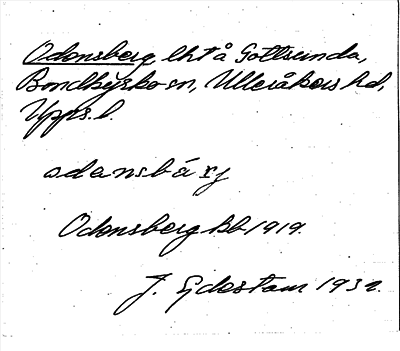 Odensberg, lht å Gottsunda,
Bondkyrko sn, Ulleråkers hd,
Upps. l.
odansbárj
Odensberg kb. 1919.
J. Ejdestam 1932.